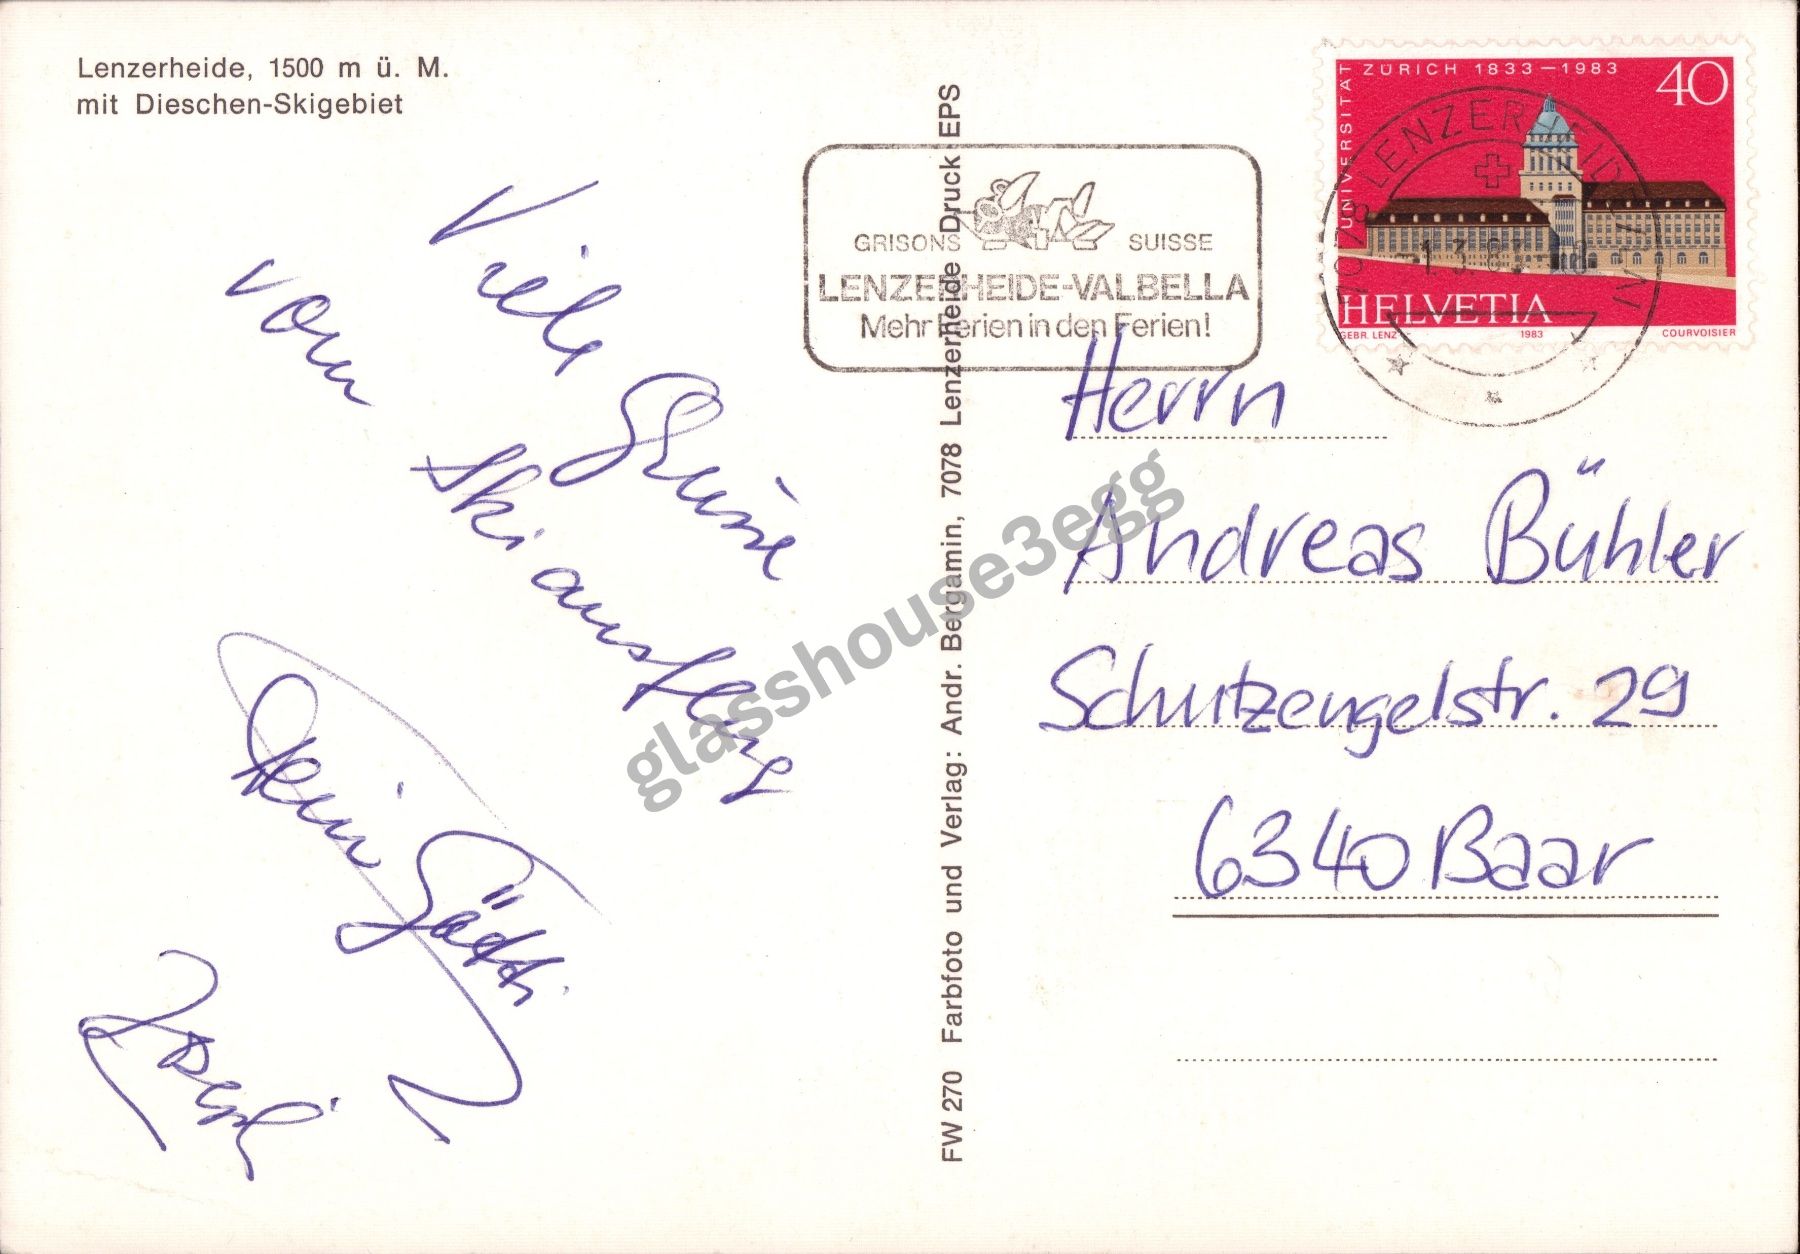 Lenzerheide, 1500 m ü. M.
mit Dieschen-Skigebiet
Viele Grüsse
vom Skiausflug
Dein Götti
Josef
FW 270 Farbfoto und Verlag: Andr. Bergamin, 7078 Lenzerheide Druck EPS
GRISONS SUISSE
LENZERHEIDE-VALBELLA
Mehr Ferien in den Ferien!
UNIVERSITÄT ZÜRICH 1833–1983
40
HELVETIA
GEBR. LENZ 1983 COURVOISIER
7078 LENZERHEIDE/LAI
1.3.83
Herrn
Andreas Bühler
Schutzengelstr. 29
6340 Baar
glasshouse3egg